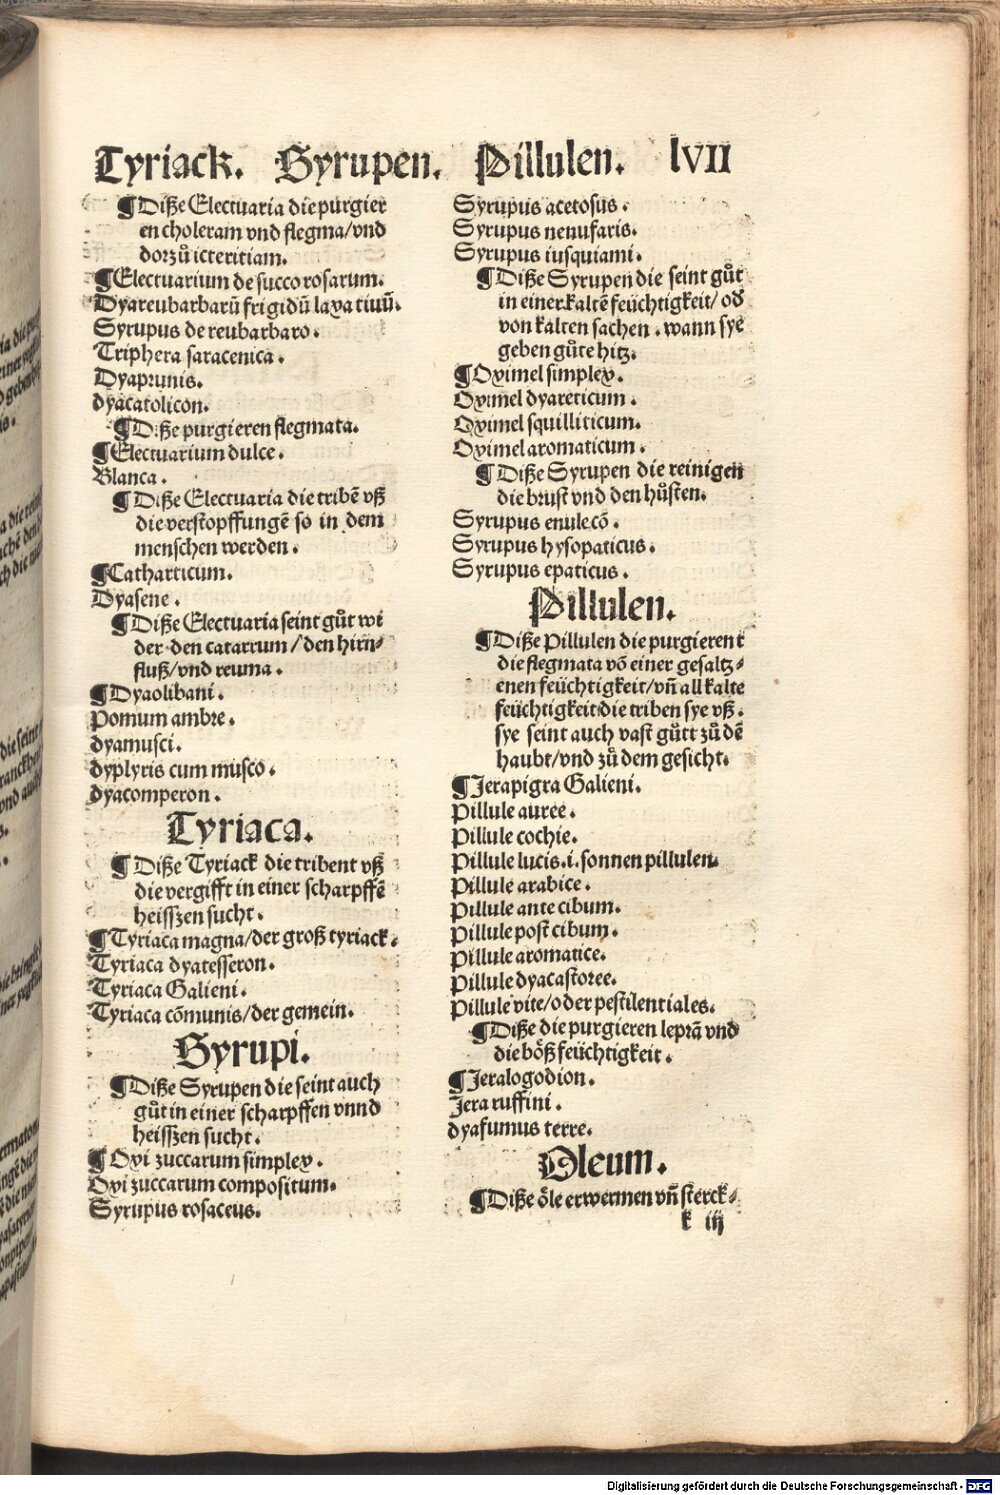 Tyriack. Syrupen. Pillulen. lVII
¶Diße Electuaria die purgier
en choleram vnd flegma/vnd
dorzů icteritiam.
¶Electuarium de succo rosarum.
Dyareubarbarū frigidū laxatiuū.
Syrupus de reubarbaro.
Triphera saracenica.
Dyaprunis.
dyacatolicon.
¶Diße purgieren flegmata.
¶Electuarium dulce.
Blanca.
¶Diße Electuaria die tribē vß
die verstopffungē so in dem
menschen werden.
¶Catharticum.
Dyasene.
¶Diße Electuaria seint gůt wi
der den catarrum/den hirn⸗
fluß/vnd reuma.
¶Dyaolibani.
Pomum ambre.
dyamusci.
dyplyris cum musco.
dyacomperon.
Tyriaca.
¶Diße Tyriack die tribent vß
die vergifft in einer scharpffē
heisszen sucht.
¶Tyriaca magna/der groß tyriack.
Tyriaca dyatesseron.
Tyriaca Galieni.
Tyriaca cōmunis/der gemein.
Syrupi.
¶Diße Syrupen die seint auch
gůt in einer scharpffen vnnd
heisszen sucht.
¶Oxi zuccarum simplex.
Oxi zuccarum compositum.
Syrupus rosaceus.
Syrupus acetosus.
Syrupus nenufaris.
Syrupus iusquiami.
¶Diße Syrupen die seint gůt
in einer kaltē feüchtigkeit/od
von kalten sachen. wann sye
geben gůte hitz.
¶Oximel simplex.
Oximel dyareticum.
Oximel squilliticum.
Oximel aromaticum.
¶Diße Syrupen die reinigen
die brust vnd den hůsten.
Syrupus enule cō.
Syrupus hysopaticus.
Syrupus epaticus.
Pillulen.
¶Diße Pillulen die purgierent
die flegmata vō einer gesaltz⸗
enen feüchtigkeit/vn̄ all kalte
feüchtigkeit die triben sye vß.
sye seint auch vast gůtt zů dē
haubt/vnd zů dem gesicht.
¶Jerapigra Galieni.
Pillule auree.
Pillule cochie.
Pillule lucis.i.sonnen pillulen.
Pillule arabice.
Pillule ante cibum.
Pillule post cibum.
Pillule aromatice.
Pillule dyacastoree.
Pillule vite/oder pestilentiales.
¶Diße die purgieren leprā vnd
die bößfeüchtigkeit.
¶Jeralogodion.
Jera ruffini.
dyafumus terre.
Oleum.
¶Diße öle erwermen vn̄ sterck⸗
k iij
Digitalisierung gefördert durch die Deutsche Forschungsgemeinschaft - DFG